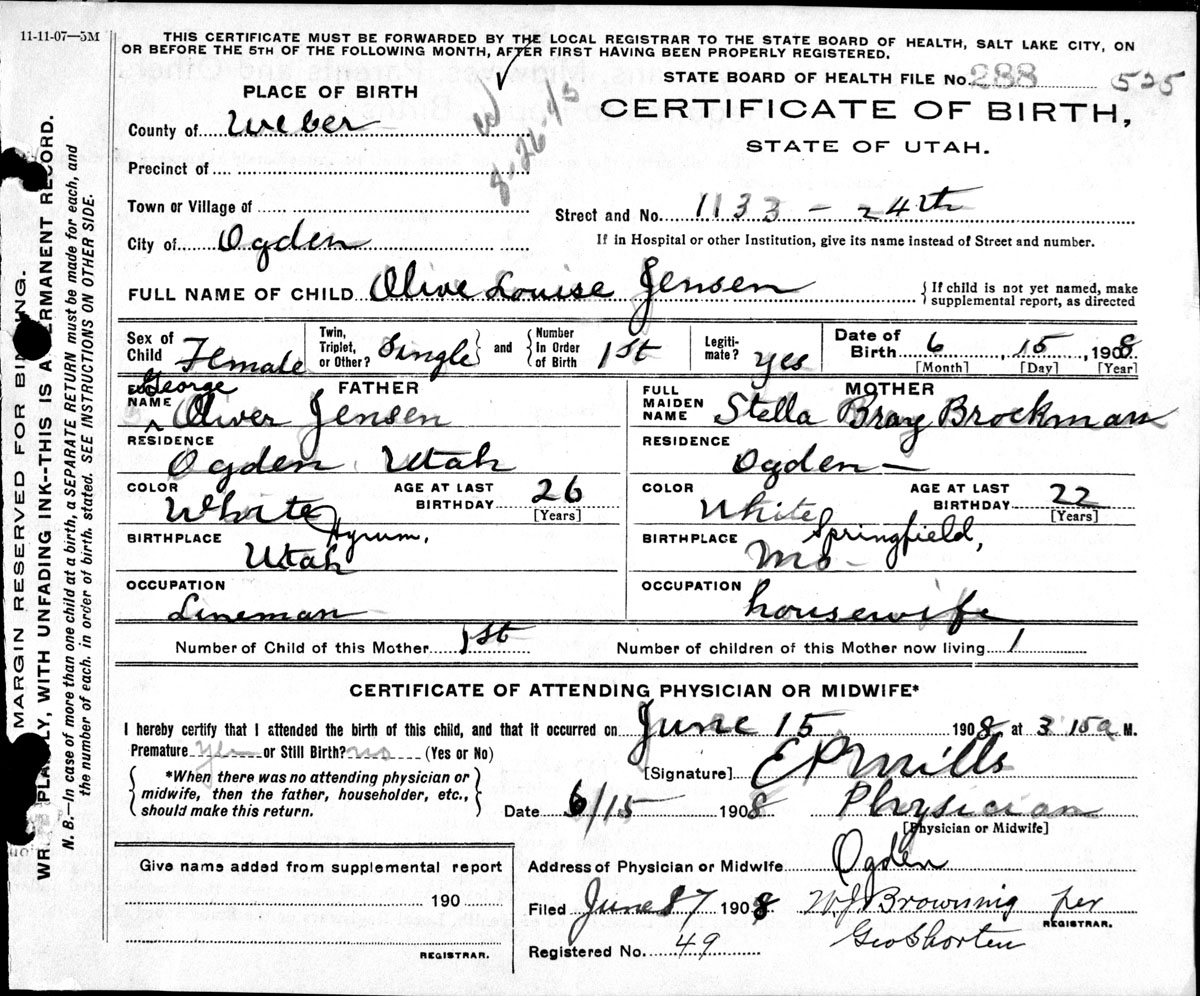 11-11-07—5M
THIS CERTIFICATE MUST BE FORWARDED BY THE LOCAL REGISTRAR TO THE STATE BOARD OF HEALTH, SALT LAKE CITY, ON
OR BEFORE THE 5TH OF THE FOLLOWING MONTH, AFTER FIRST HAVING BEEN PROPERLY REGISTERED.
STATE BOARD OF HEALTH FILE No. 288 525
PLACE OF BIRTH
CERTIFICATE OF BIRTH,
STATE OF UTAH.
County of Weber
Precinct of
Town or Village of
Street and No. 1133 - 24th
City of Ogden
If in Hospital or other Institution, give its name instead of Street and number.
FULL NAME OF CHILD Olive Louise Jensen
{If child is not yet named, make
supplemental report, as directed
Sex of Child Female
Twin, Triplet, or Other? Single } and { Number In Order of Birth 1st
Legiti-mate? yes
Date of Birth 6, 15, 1908
[Month] [Day] [Year]
FATHER
NAME George Oliver Jensen
RESIDENCE
Ogden Utah
COLOR White
AGE AT LAST BIRTHDAY 26
[Years]
BIRTHPLACE Hyrum,
Utah
OCCUPATION
Lineman
MOTHER
FULL MAIDEN NAME Stella Bray Brockman
RESIDENCE
Ogden —
COLOR White
AGE AT LAST BIRTHDAY 22
[Years]
BIRTHPLACE Springfield,
Mo -
OCCUPATION
housewife
Number of Child of this Mother 1st
Number of children of this Mother now living 1
CERTIFICATE OF ATTENDING PHYSICIAN OR MIDWIFE*
I hereby certify that I attended the birth of this child, and that it occurred on June 15 1908 at 3 15a M.
Premature yes or Still Birth? no (Yes or No)
{ *When there was no attending physician or
midwife, then the father, householder, etc.,
should make this return. }
[Signature] E P Mills
Date 6/15 1908 Physician
[Physician or Midwife]
Give name added from supplemental report
190
REGISTRAR.
Address of Physician or Midwife Ogden
Filed June 1908 W J Browning per
REGISTRAR.
Registered No. 49 Geo Shorten
MARGIN RESERVED FOR
PLAINLY, WITH UNFADING INK--THIS IS A PERMANENT RECORD.
N. B.—In case of more than one child at a birth, a SEPARATE RETURN must be made for each, and
the number of each, in order of birth, stated. SEE INSTRUCTIONS ON OTHER SIDE.